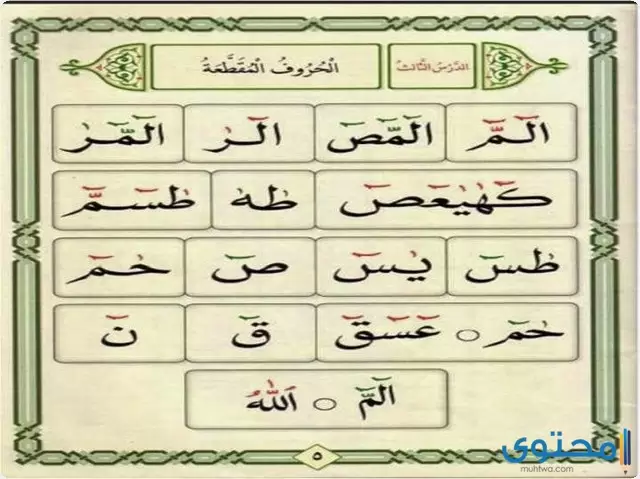 الدَّرْسُ الثَّالِثُ الْحُرُوفُ الْمُقَطَّعَةُ
الٓمّٓ الٓمّٓصٓ الٓرٰ الٓمّٓرٰ
كٓهٰيٰعٓصٓ طٰهٰ طٰسٓمّٓ
طٰسٓ يٰسٓ صٓ حٰمٓ
حٰمٓ ○ عٓسٓقٓ قٓ نٓ
الٓمّٓ ○ اللّٰهُ
٥
محتوى
muhtwa.com